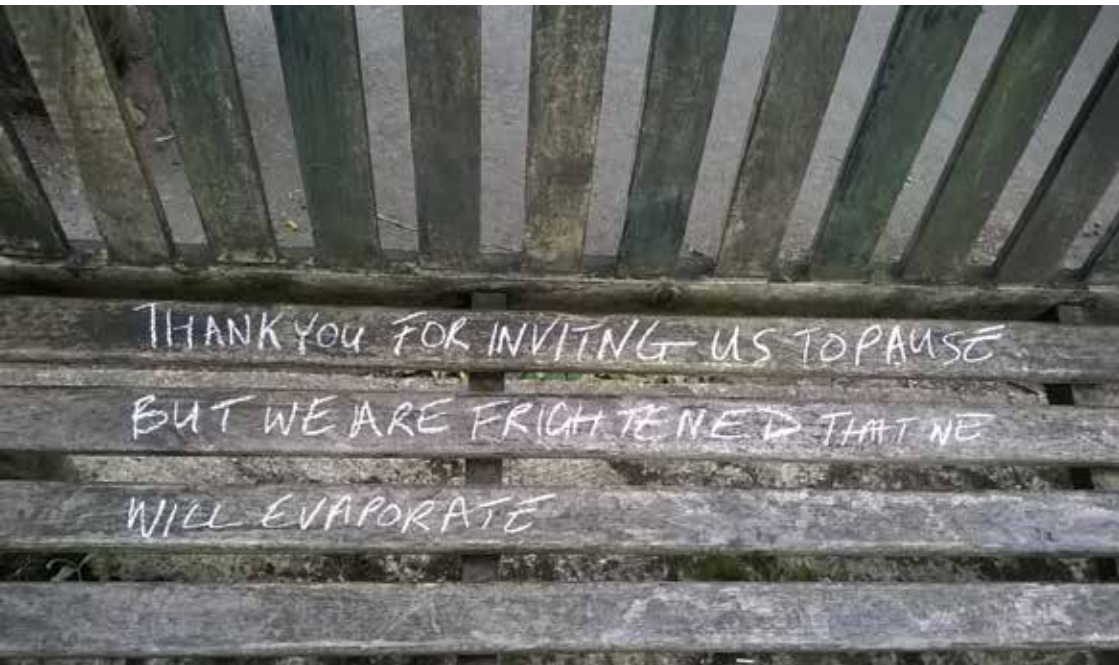 THANK YOU FOR INVITNG US TO PAUSE
BUT WE ARE FRIGHTENED THAT WE
WILL EVAPORATE